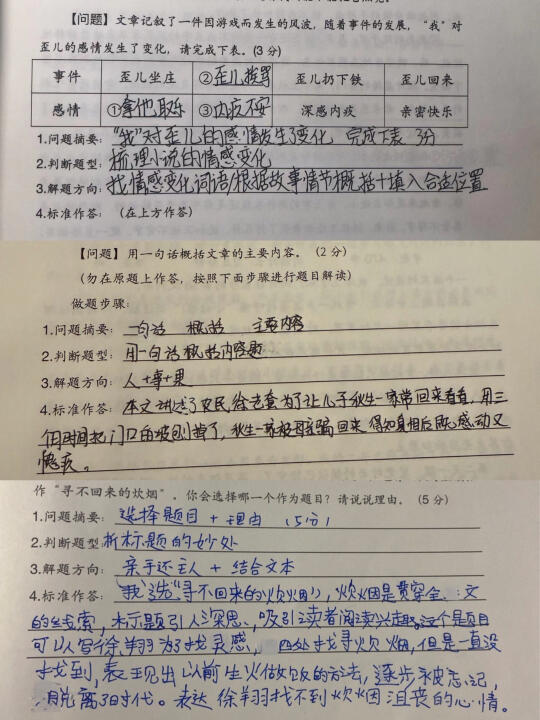 【问题】文章记叙了一件因游戏而发生的风波，随着事件的发展，“我”对
歪儿的感情发生了变化，请完成下表。(3 分)
事件 歪儿坐庄 ②歪儿挨骂 歪儿扔下鞋 歪儿回来
感情 ①拿他取乐 ③内疚不安 深感内疚 亲密快乐
1.问题摘要：“我”对歪儿的感情发生了变化 完成下表 3分
2.判断题型：梳理小说的情感变化
3.解题方向：找情感变化词语/根据故事情节概括+填入合适位置
4.标准作答：（在上方作答）
【问题】用一句话概括文章的主要内容。（2 分）
（勿在原题上作答，按照下面步骤进行题目解读）
做题步骤：
1.问题摘要：一句话 概括 主要内容
2.判断题型：用一句话概括内容题
3.解题方向：人+事+果
4.标准作答：本文讲述了农民徐老套为了让儿子秋生一家常回来看看，用三
个月时间把门口的坡刨掉了，秋生一家被哥骗回来，得知真相后既感动又
愧疚。
作“寻不回来的炊烟”，你会选择哪一个作为题目？请说说理由。（5 分）
1.问题摘要：选择题目 + 理由 （5分）
2.判断题型：析标题的妙处
3.解题方向：亲手还主人 + 结合文本
4.标准作答：我选“寻不回来的炊烟”，炊烟是贯穿全文
的线索，标题引人深思，吸引读者阅读兴趣。这个题目
可以写徐翔为了找灵感，四处找寻炊烟，但是一直没
找到，表现出以前生火做饭的方法，逐步被忘记，
脱离了时代。表达徐翔找不到炊烟沮丧的心情。